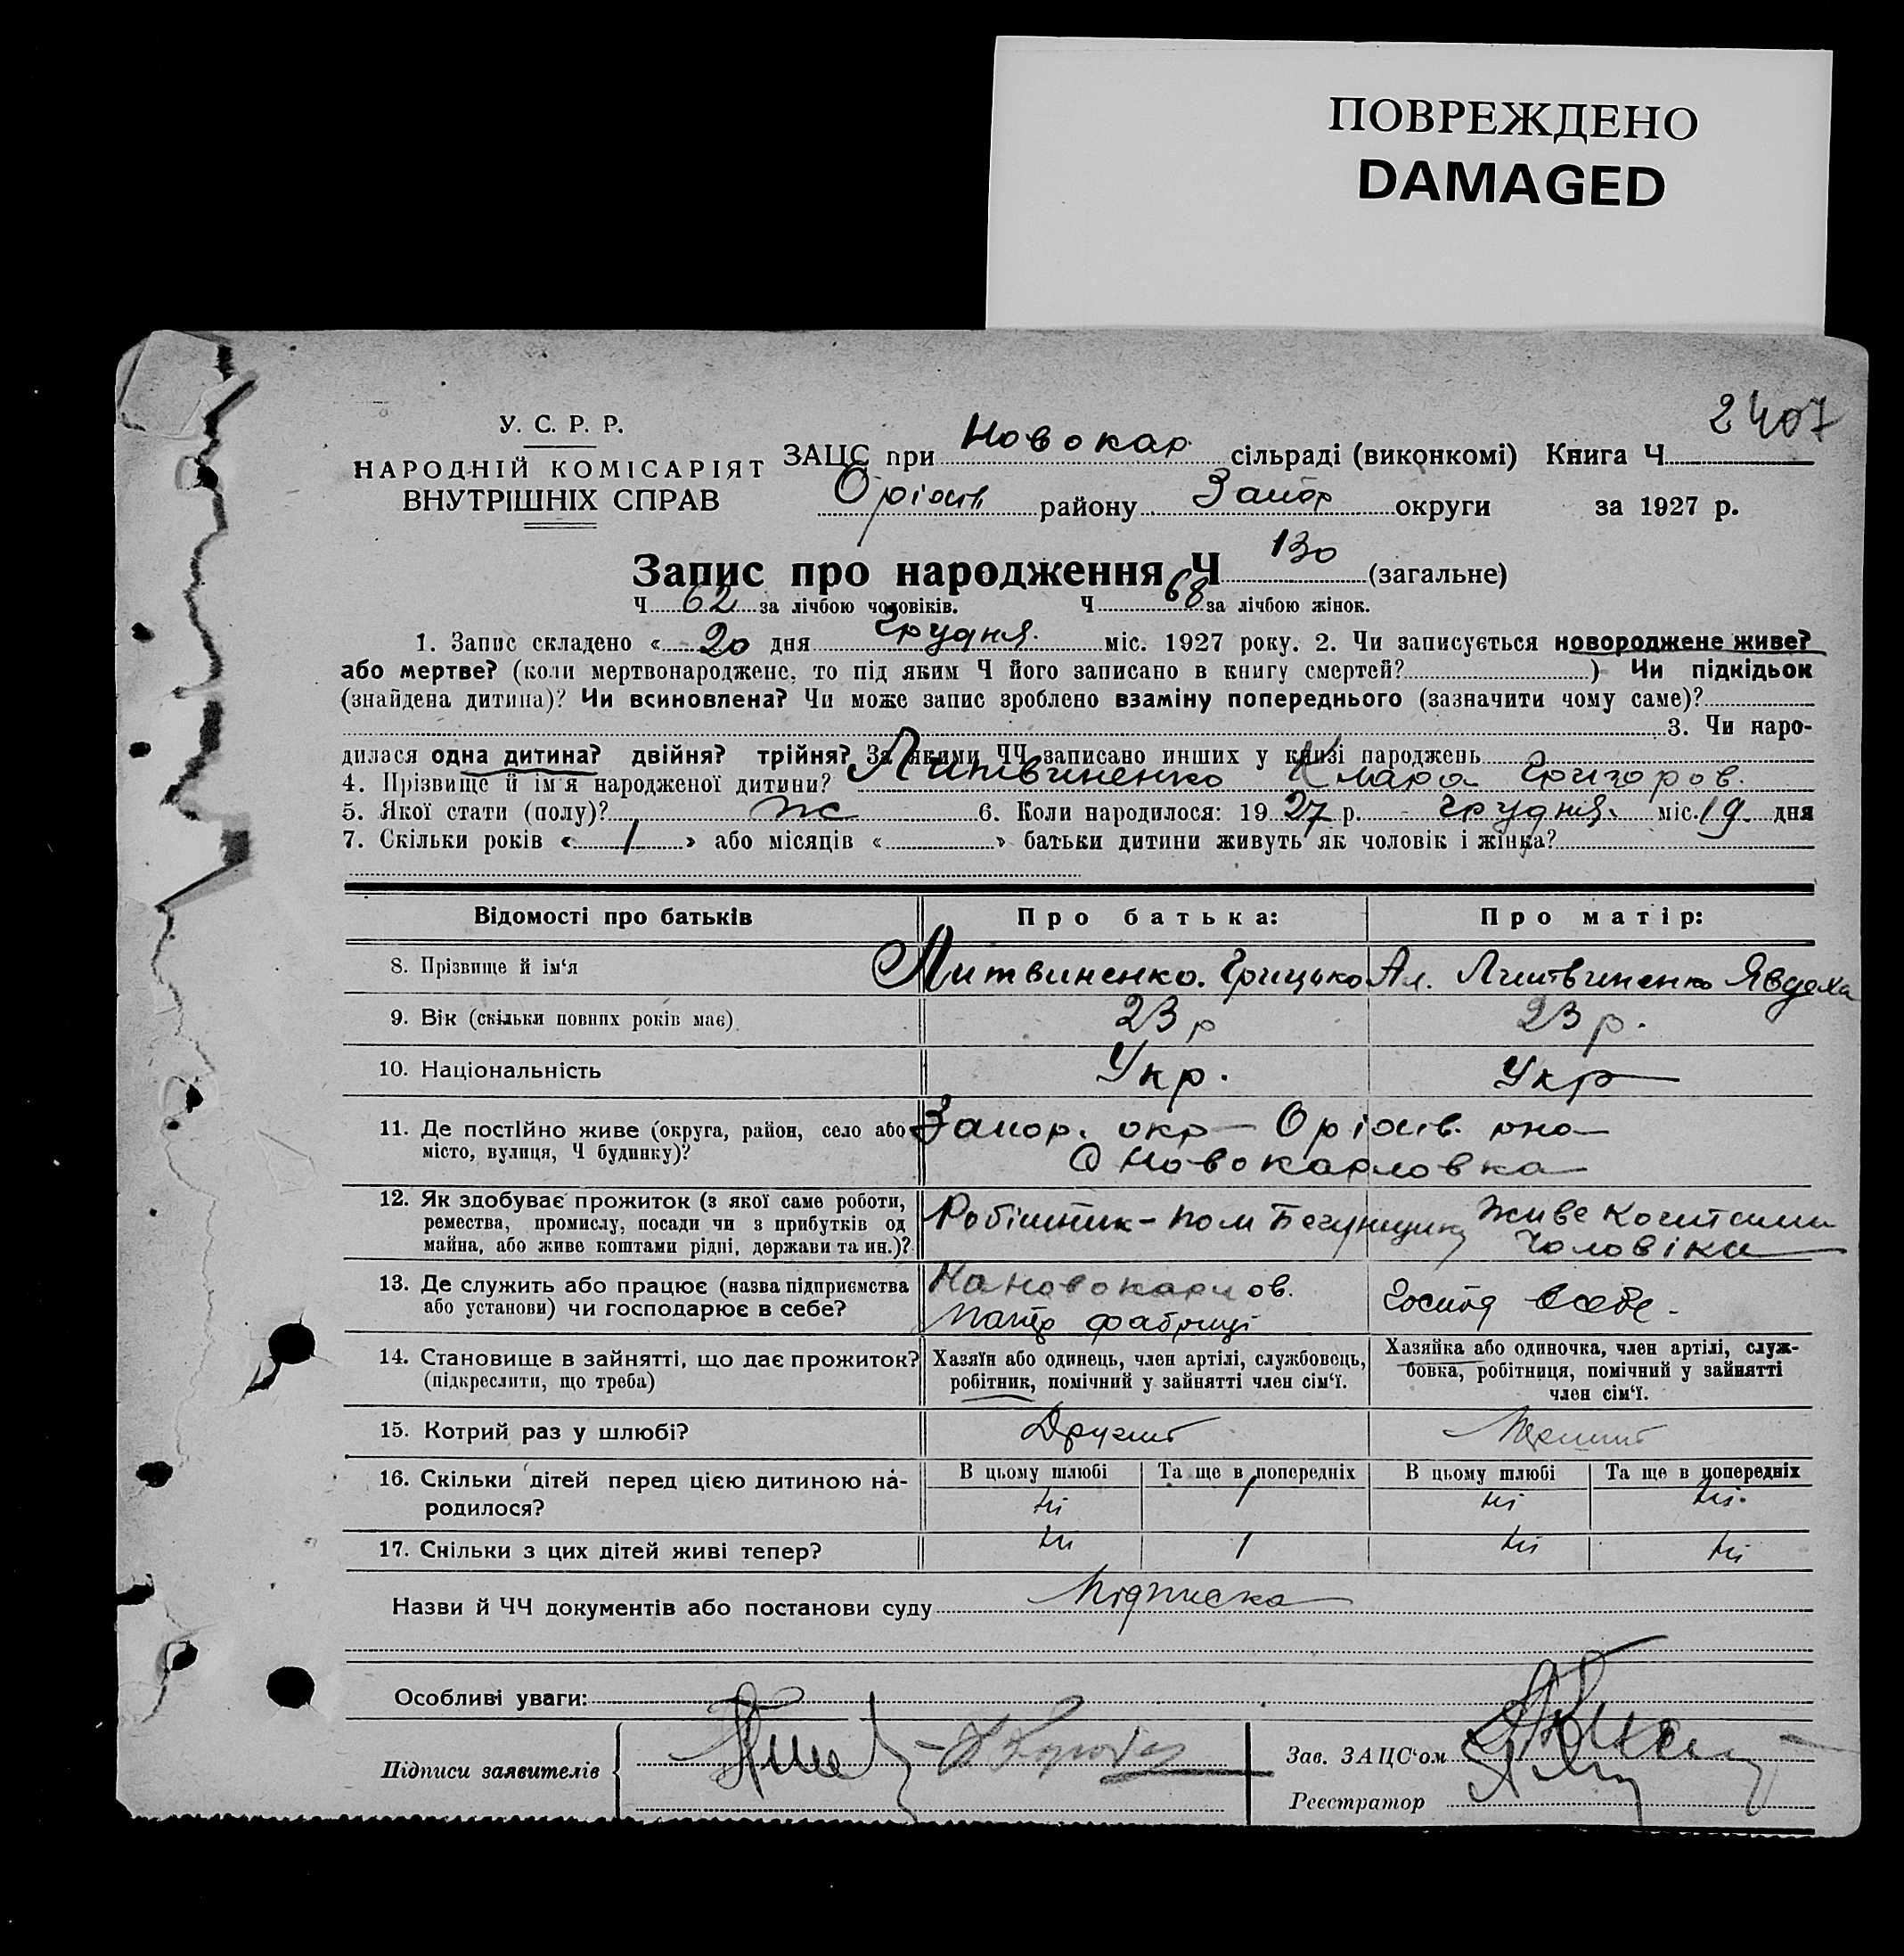 ПОВРЕЖДЕНО
DAMAGED
2407
У. С. Р. Р.
НАРОДНІЙ КОМІСАРІЯТ
ВНУТРІШНІХ СПРАВ
ЗАЦС при Новокар сільраді (виконкомі) Книга Ч
Оріхів району Запор округи за 1927 р.
Запис про народження Ч 130 (загальне)
Ч 62 за лічбою чоловіків. Ч 68 за лічбою жінок.
1. Запис складено « 20 дня Грудня міс. 1927 року. 2. Чи записується новороджене живе?
або мертве? (коли мертвонароджене, то під яким Ч його записано в книгу смертей? ) Чи підкідьок
(знайдена дитина)? Чи всиновлена? Чи може запис зроблено взаміну попереднього (зазначити чому саме)?
3. Чи наро-
дилася одна дитина? двійня? трійня? За якими ЧЧ записано инших у книзі народжень
4. Прізвище й ім'я народженої дитини? Литвиненко Клара Григоров.
5. Якої стати (полу)? ж 6. Коли народилося: 1927 р. Грудня міс. 19 дня
7. Скільки років « 1 » або місяців « » батьки дитини живуть як чоловік і жінка?
Відомості про батьків Про батька: Про матір:
8. Прізвище й ім'я Литвиненко. Грицько Ал. Литвиненко Явдоха
9. Вік (скільки повних років має) 23 р 23 р.
10. Національність Укр. Укр
11. Де постійно живе (округа, район, село або Запор. окр Оріхів. рно
місто, вулиця, Ч будинку)? С Новокарловка
12. Як здобуває прожиток (з якої саме роботи, Робітник - пом Бегунщик Живе коштами
ремества, промислу, посади чи з прибутків од чоловіка
майна, або живе коштами рідні, держави та ин.)?
13. Де служить або працює (назва підприємства На Новокарлов. Господ в себе.
або установи) чи господарює в себе? Папер фабриці
14. Становище в зайнятті, що дає прожиток? Хазяїн або одинець, член артілі, службовець, Хазяйка або одиночка, член артілі, служ-
(підкреслити, що треба) робітник, помічний у зайнятті член сім'ї. бовка, робітниця, помічний у зайнятті
член сім'ї.
15. Котрий раз у шлюбі? Другий Перший
16. Скільки дітей перед цією дитиною на- В цьому шлюбі Та ще в попередніх В цьому шлюбі Та ще в попередніх
родилося? ні 1 ні ні.
17. Скільки з цих дітей живі тепер? ні 1 ні ні
Назви й ЧЧ документів або постанови суду Підписка
Особливі уваги:
Підписи заявителів
Зав. ЗАЦС'ом
Реєстратор